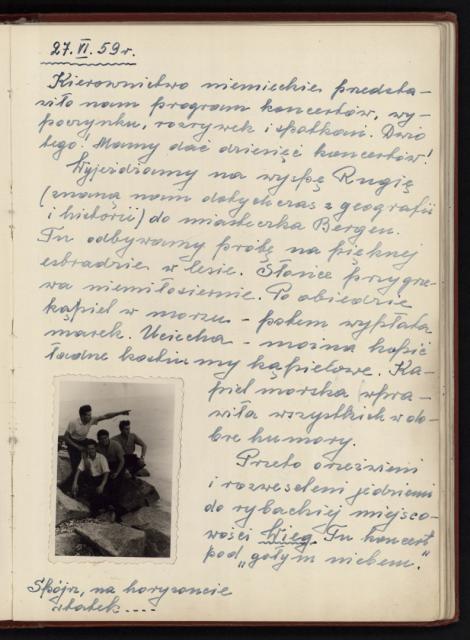 27.VI.59 r.
Kierownictwo niemieckie przedsta-
wiło nam program koncertów, wy-
poczynku, rozrywek i spotkań. Dużo
tego! Mamy dać dziesięć koncertów!
Wyjeżdżamy na wyspę Rugię
(znaną nam dotychczas z geografii
i historii) do miasteczka Bergen.
Tu odbywamy próbę na pięknej
estradzie w lesie. Słońce przygrze-
wa niemiłosiernie. Po obiedzie
kąpiel w morzu - potem wypłata
marek. Uciecha - można kupić
ładne kostiumy kąpielowe. Ką-
piel morska wpra-
wiła wszystkich w do-
bre humory.
Przeto orzeźwieni
i rozweseleni jedziemy
do rybackiej miejsco-
wości Wieg. Tu koncert
pod „gołym niebem."
Spójrz, na horyzoncie
statek....